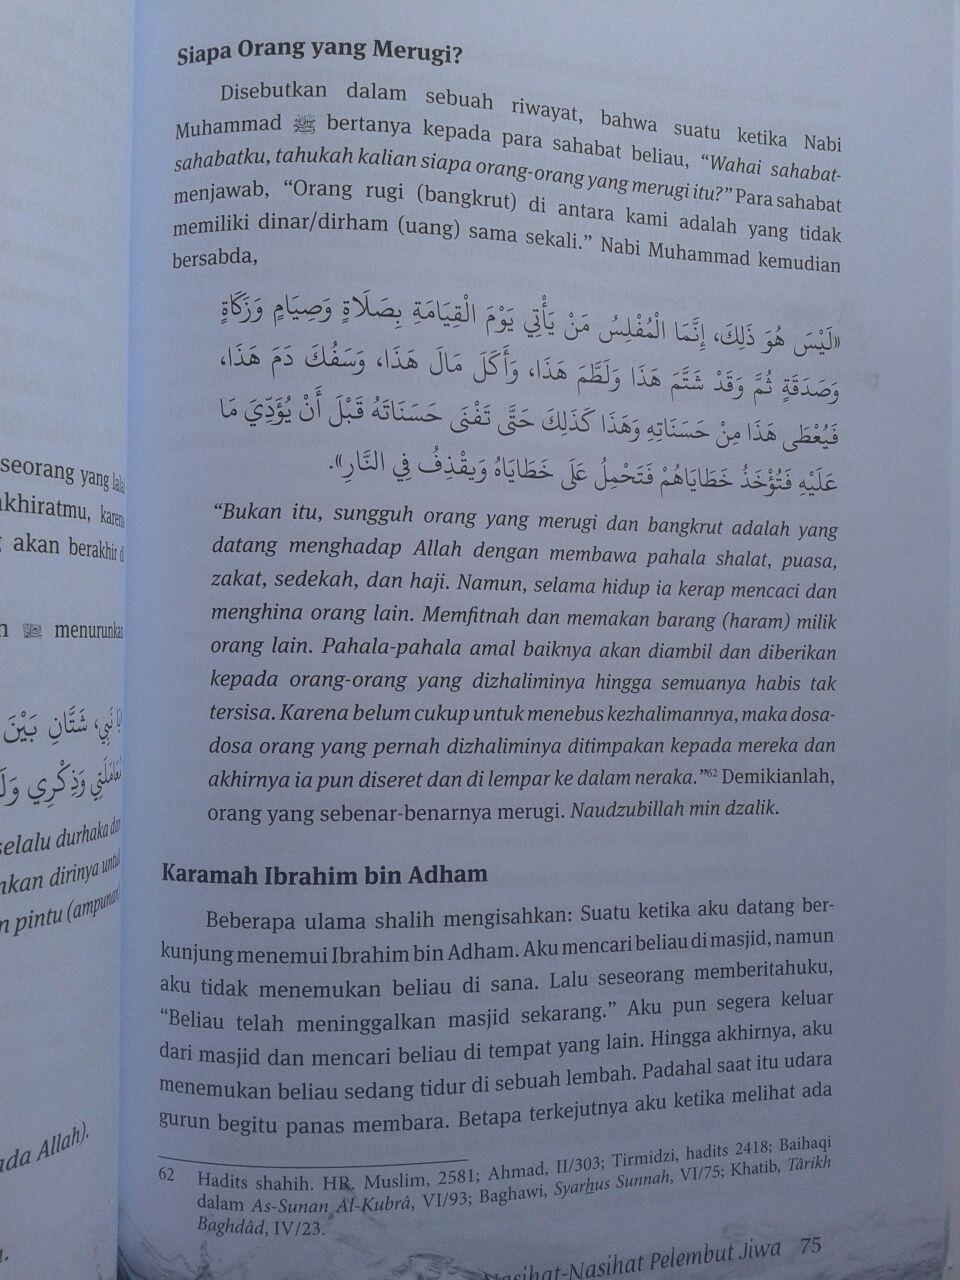 Siapa Orang yang Merugi?
Disebutkan dalam sebuah riwayat, bahwa suatu ketika Nabi
Muhammad ﷺ bertanya kepada para sahabat beliau, “Wahai sahabat-
sahabatku, tahukah kalian siapa orang-orang yang merugi itu?” Para sahabat
menjawab, “Orang rugi (bangkrut) di antara kami adalah yang tidak
memiliki dinar/dirham (uang) sama sekali.” Nabi Muhammad kemudian
bersabda,
«لَيْسَ هُوَ ذَلِكَ، إِنَّمَا الْمُفْلِسُ مَنْ يَأْتِي يَوْمَ الْقِيَامَةِ بِصَلَاةٍ وَصِيَامٍ وَزَكَاةٍ
وَصَدَقَةٍ ثُمَّ وَقَدْ شَتَّمَ هَذَا وَلَطَّمَ هَذَا، وَأَكَلَ مَالَ هَذَا، وَسَفُكَ دَمَ هَذَا،
فَيُعْطَى هَذَا مِنْ حَسَنَاتِهِ وَهَذَا كَذَلِكَ حَتَّى تَفْنَى حَسَنَاتَهُ قَبْلَ أَنْ يُؤَدِّيَ مَا
عَلَيْهِ فَتُؤْخَذُ خَطَايَاهُمْ فَتَحْمِلُ عَلَى خَطَايَاهُ وَيقْذِفُ فِي النَّارِ».
“Bukan itu, sungguh orang yang merugi dan bangkrut adalah yang
datang menghadap Allah dengan membawa pahala shalat, puasa,
zakat, sedekah, dan haji. Namun, selama hidup ia kerap mencaci dan
menghina orang lain. Memfitnah dan memakan barang (haram) milik
orang lain. Pahala-pahala amal baiknya akan diambil dan diberikan
kepada orang-orang yang dizhaliminya hingga semuanya habis tak
tersisa. Karena belum cukup untuk menebus kezhalimannya, maka dosa-
dosa orang yang pernah dizhaliminya ditimpakan kepada mereka dan
akhirnya ia pun diseret dan di lempar ke dalam neraka.”62 Demikianlah,
orang yang sebenar-benarnya merugi. Naudzubillah min dzalik.
Karamah Ibrahim bin Adham
Beberapa ulama shalih mengisahkan: Suatu ketika aku datang ber-
kunjung menemui Ibrahim bin Adham. Aku mencari beliau di masjid, namun
aku tidak menemukan beliau di sana. Lalu seseorang memberitahuku,
“Beliau telah meninggalkan masjid sekarang.” Aku pun segera keluar
dari masjid dan mencari beliau di tempat yang lain. Hingga akhirnya, aku
menemukan beliau sedang tidur di sebuah lembah. Padahal saat itu udara
gurun begitu panas membara. Betapa terkejutnya aku ketika melihat ada
62 Hadits shahih. HR. Muslim, 2581; Ahmad, II/303; Tirmidzi, hadits 2418; Baihaqi
dalam As-Sunan Al-Kubrâ, VI/93; Baghawi, Syarhus Sunnah, VI/75; Khatib, Târikh
Baghdâd, IV/23.
Nasihat-Nasihat Pelembut Jiwa 75
seorang yang lalai
akhiratmu, karena
akan berakhir di
menurunkan
نَبِي، شَتَّانِ بَيْنَ
وَذِكْرِي
selalu durhaka dan
dirinya untuk
pintu (ampunan)
Allah).